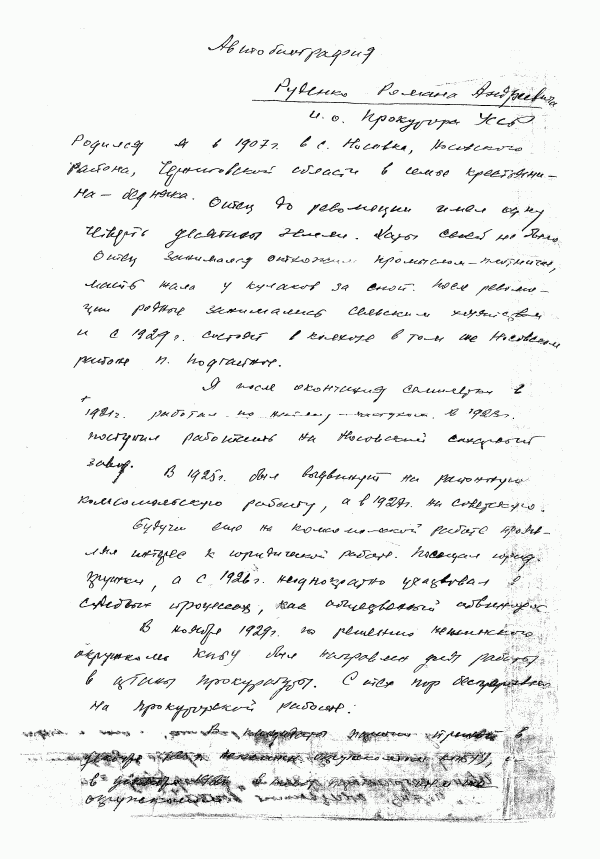 Автобиография
Руденко Романа Андреевича
и.о. Прокурора УССР
Родился я в 1907 г. в с. Носовка, Носовского
района, Черниговской области в семье крестьяни-
на-бедняка. Отец до революции имел одну
четверть десятины земли. Хаты своей не было.
Отец занимался отхожим промыслом-плотничал,
мать жала у кулаков за сноп. После револю-
ции родные занимались сельским хозяйством
и с 1929 г. состоят в колхозе в том же Носовском
районе п. Подгайное.
Я после окончания семилетки в
1921г. работал по найму пастухом. В 1923г.
поступил работать на Носовский сахарный
завод. В 1925г. был выдвинут на районную
комсомольскую работу, а в 1927г. на советскую.
Будучи еще на комсомольской работе прояв-
лял интерес к юридической работе. Посещал юрид.
кружки, а с 1926г. неоднократно участвовал в
судебных процессах, как общественный обвинитель.
В ноябре 1929г. по решению Нежинского
окружкома КП(б)У был направлен для работы
в органы прокуратуры. С тех пор беспрерывно
на прокурорской работе.
В кандидаты партии принят в
окружкома КП(б)У,
в
окружкомом